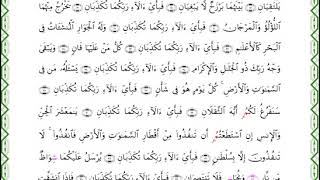 يَلْتَقِيَانِ بَيْنَهُمَا بَرْزَخٌ لَّا يَبْغِيَانِ فَبِأَيِّ ءَالَآءِ رَبِّكُمَا تُكَذِّبَانِ يَخْرُجُ مِنْهُمَا
اللُّؤْلُؤُ وَالْمَرْجَانُ فَبِأَيِّ ءَالَآءِ رَبِّكُمَا تُكَذِّبَانِ وَلَهُ الْجَوَارِ الْمُنشَئَاتُ فِي
الْبَحْرِ كَالْأَعْلَٰمِ فَبِأَيِّ ءَالَآءِ رَبِّكُمَا تُكَذِّبَانِ كُلُّ مَنْ عَلَيْهَا فَانٍ وَيَبْقَىٰ
وَجْهُ رَبِّكَ ذُو الْجَلَٰلِ وَالْإِكْرَامِ فَبِأَيِّ ءَالَآءِ رَبِّكُمَا تُكَذِّبَانِ يَسْئَلُهُ مَن فِي
السَّمَٰوَٰتِ وَالْأَرْضِ كُلَّ يَوْمٍ هُوَ فِي شَأْنٍ فَبِأَيِّ ءَالَآءِ رَبِّكُمَا تُكَذِّبَانِ
سَنَفْرُغُ لَكُمْ أَيُّهَ الثَّقَلَانِ فَبِأَيِّ ءَالَآءِ رَبِّكُمَا تُكَذِّبَانِ يَٰمَعْشَرَ الْجِنِّ
وَالْإِنسِ إِنِ اسْتَطَعْتُمْ أَن تَنفُذُوا مِنْ أَقْطَارِ السَّمَٰوَٰتِ وَالْأَرْضِ فَانفُذُوا لَا
تَنفُذُونَ إِلَّا بِسُلْطَٰنٍ فَبِأَيِّ ءَالَآءِ رَبِّكُمَا تُكَذِّبَانِ يُرْسَلُ عَلَيْكُمَا شُوَاظٌ
مِّن نَّارٍ وَنُحَاسٌ فَلَا تَنتَصِرَانِ فَبِأَيِّ ءَالَآءِ رَبِّكُمَا تُكَذِّبَانِ فَإِذَا انشَقَّتِ